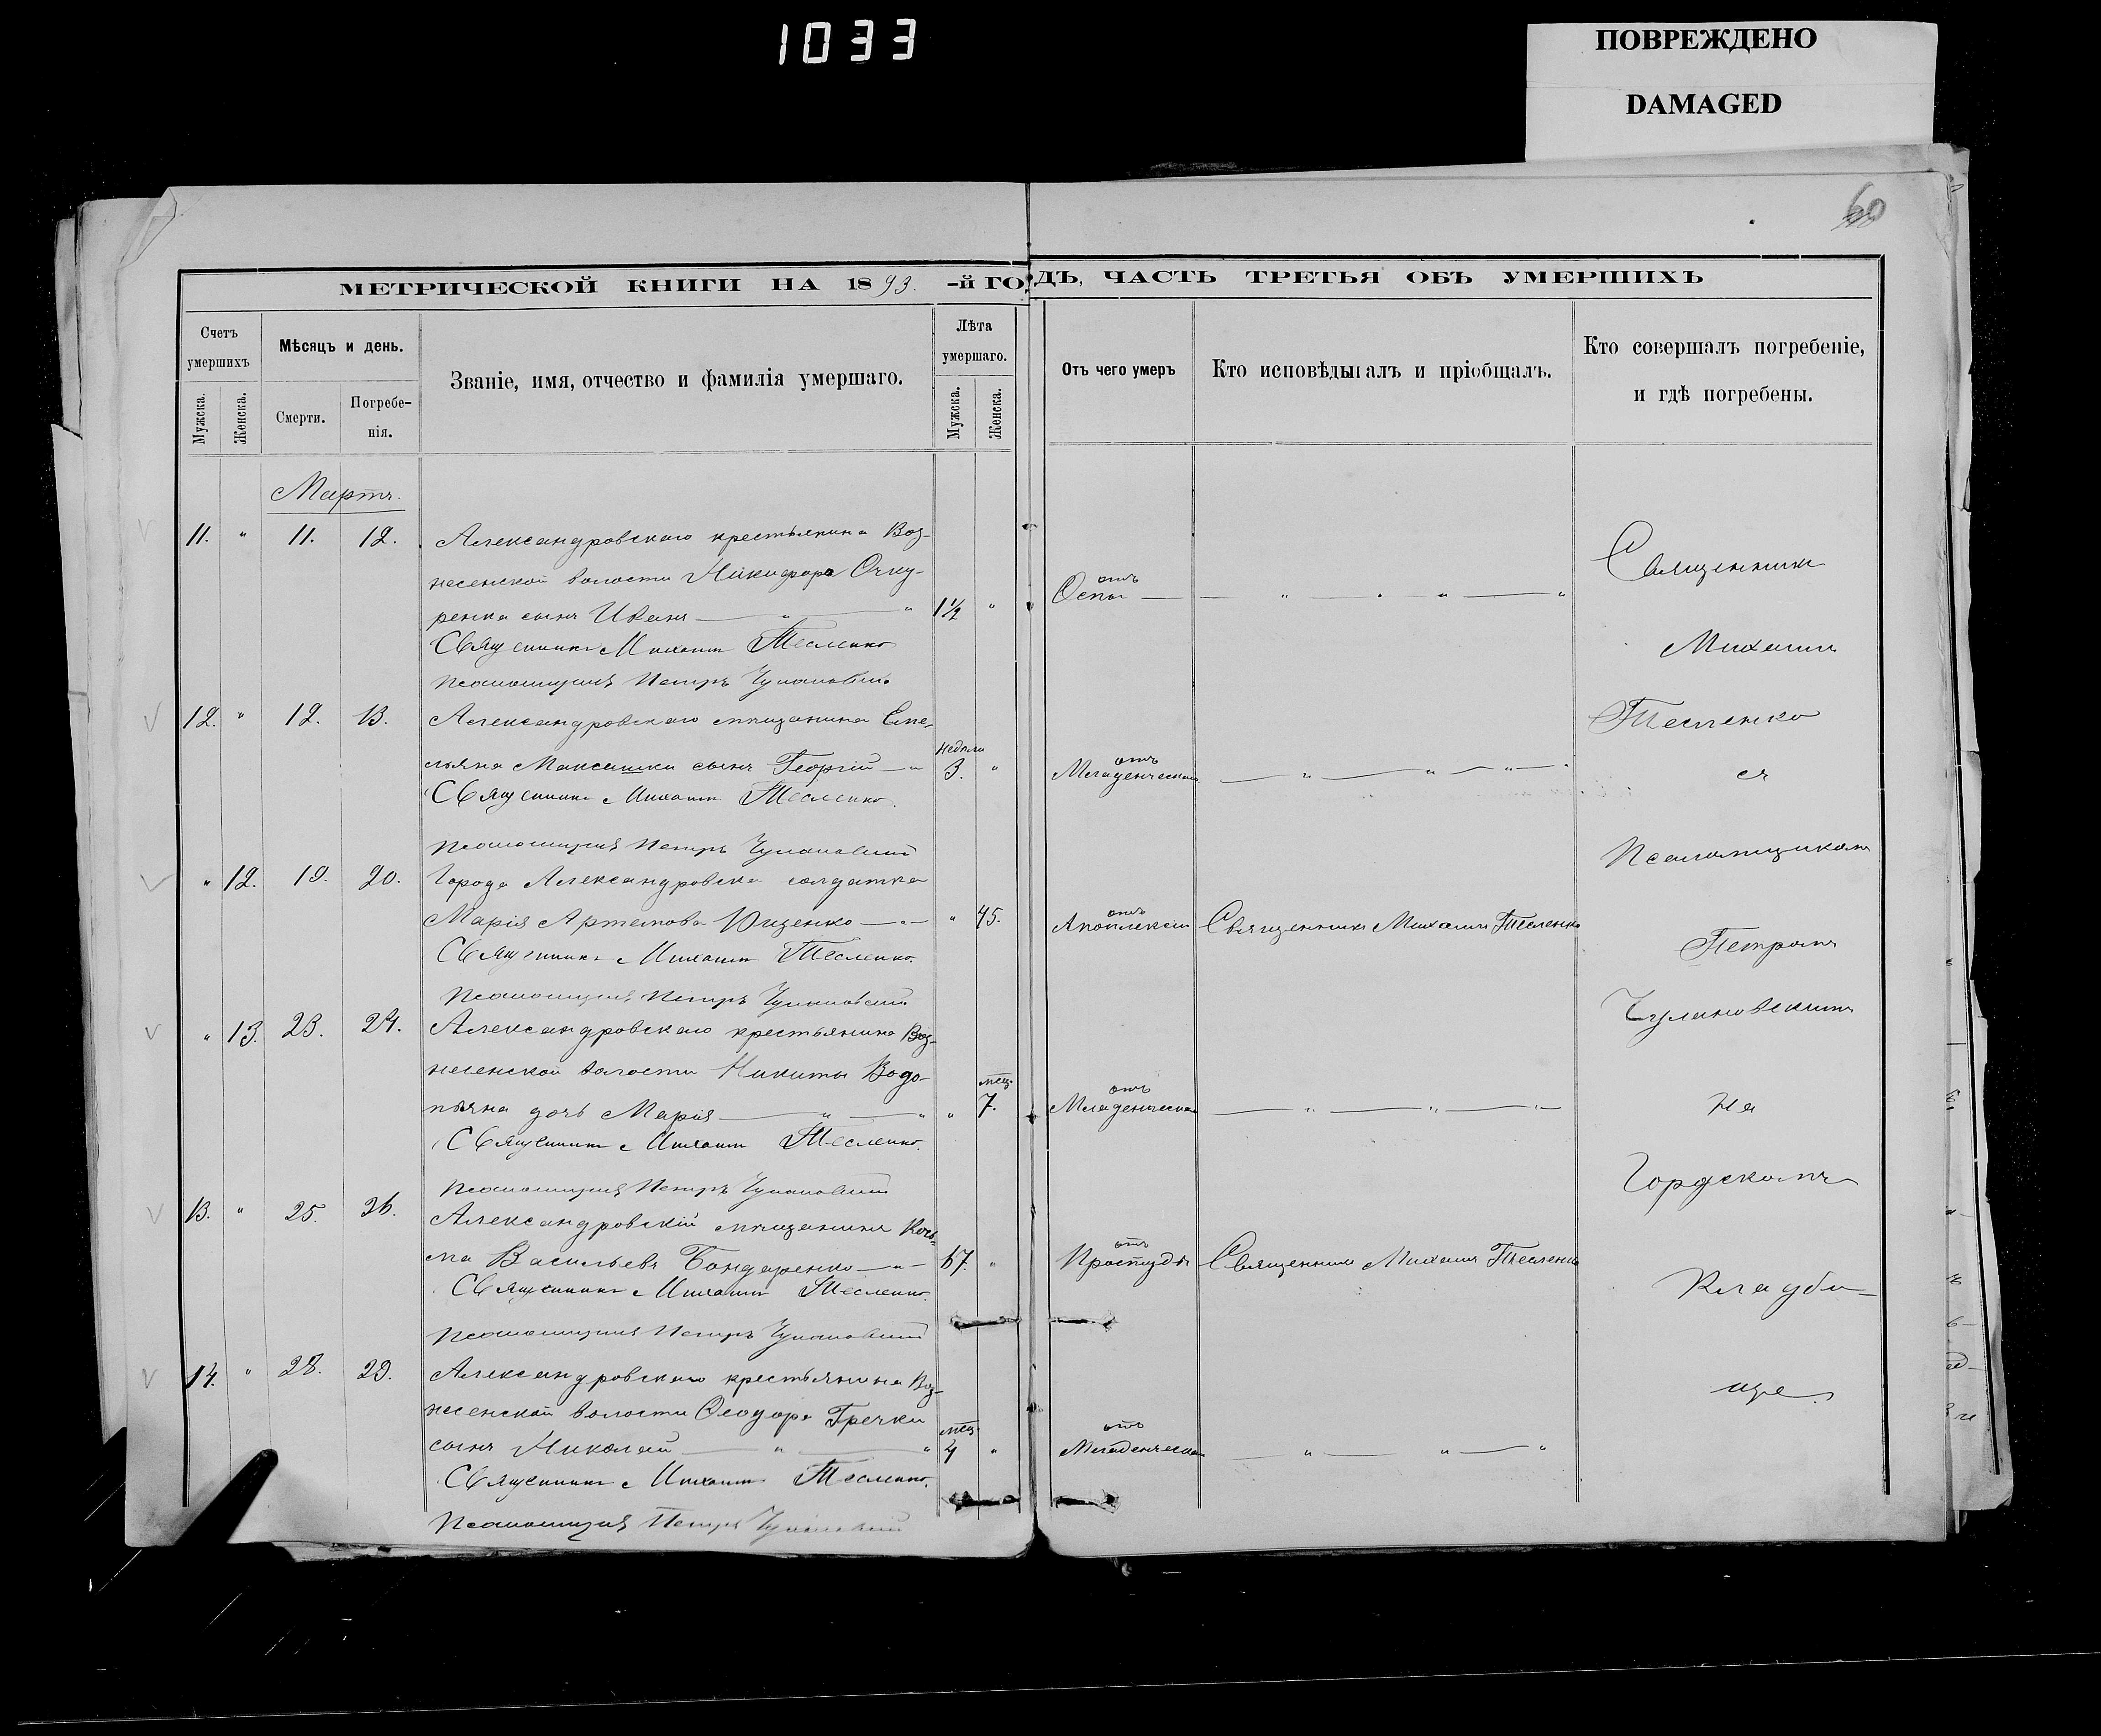 1033
ПОВРЕЖДЕНО
DAMAGED
60
МЕТРИЧЕСКОЙ КНИГИ НА 1893.-й ГОДЪ, ЧАСТЬ ТРЕТЬЯ ОБЪ УМЕРШИХЪ
Счетъ умершихъ
Мужска.
Женска.
Мѣсяцъ и день.
Смерти.
Погребе-
нія.
Званіе, имя, отчество и фамилія умершаго.
Лѣта
умершаго.
Мужска.
Женска.
Отъ чего умеръ
Кто исповѣдывалъ и пріобщалъ.
Кто совершалъ погребеніе,
и гдѣ погребены.
Мартъ.
11. " 11. 12. Александровскаго крестьянина Воз-
несенской волости Никифора Очку-
ренка сынъ Иванъ — " — " 1½ " отъ Оспы — " — " — "
Священникъ Михаилъ Тесленко
Псаломщикъ Петръ Чулановскій
12. " 12. 13. Александровскаго мѣщанина Еме-
льяна Максимки сынъ Георгій — " недѣли 3. " отъ Младенческой — " — " — " — "
Священникъ Михаилъ Тесленко.
Псаломщикъ Петръ Чулановскій
" 12. 19. 20. Города Александровска солдатка
Марія Артемова Ющенко — " — " 45. отъ Апоплексіи Священникъ Михаилъ Тесленко
Священникъ Михаилъ Тесленко.
Псаломщикъ Петръ Чулановскій
" 13. 23. 24. Александровскаго крестьянина Воз-
несенской волости Никиты Водо-
пьяна дочь Марія — " — " " мѣц. 7. отъ Младенческой — " — " — " —
Священникъ Михаилъ Тесленко.
Псаломщикъ Петръ Чулановскій
13. " 25. 26. Александровскій мѣщанинъ Козь-
ма Васильевъ Бондаренко — " — 67. " отъ Простуды Священникъ Михаилъ Тесленко
Священникъ Михаилъ Тесленко.
Псаломщикъ Петръ Чулановскій
14. " 28. 29. Александровскаго крестьянина Воз-
несенской волости Ѳеодора Гречки
сынъ Николай — " — " мѣц. 4 " отъ Младенческой — " — " — "
Священникъ Михаилъ Тесленко.
Псаломщикъ Петръ Чулановскій
Священникъ
Михаилъ
Тесленко
съ
Псаломщикомъ
Петромъ
Чулановскимъ
на
Городскомъ
Кладби-
ще.